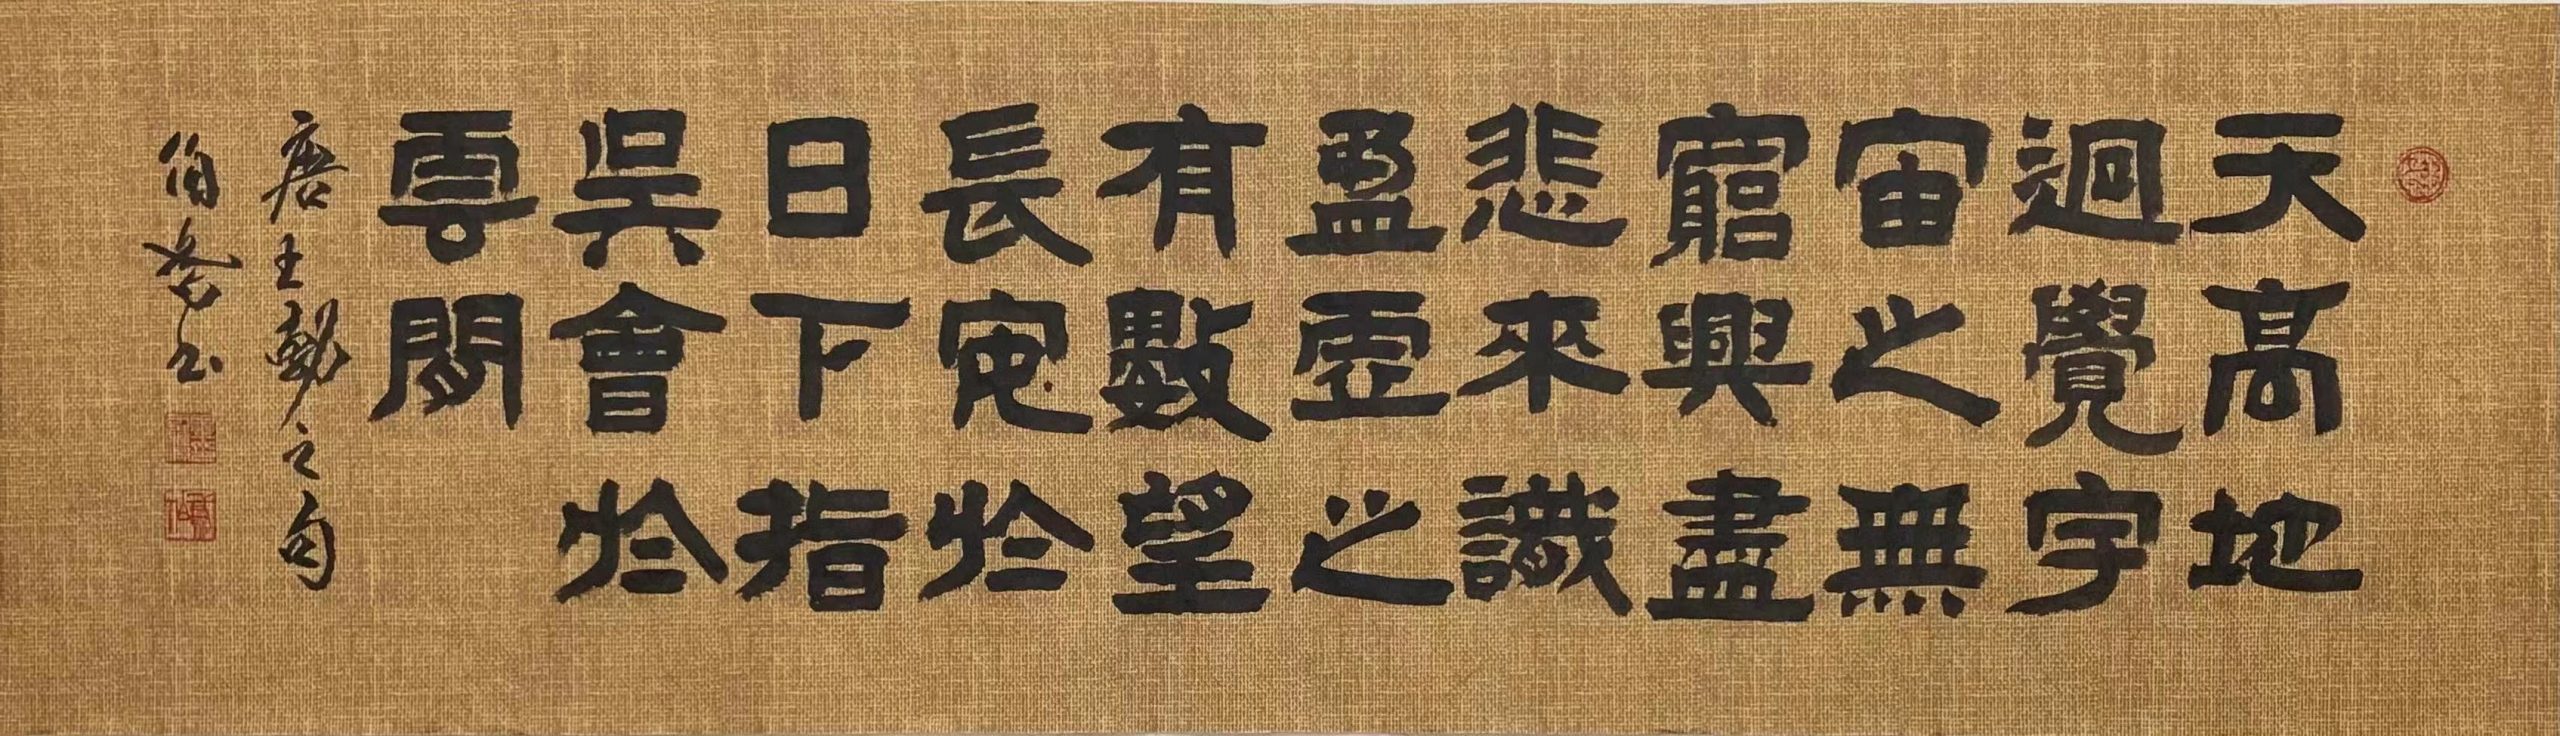 天高地
迥覺宇
宙之無
窮興盡
悲來識
盈虛之
有數望
長安於
日下指
吳會於
雲間
唐王勃之句
伯喬書